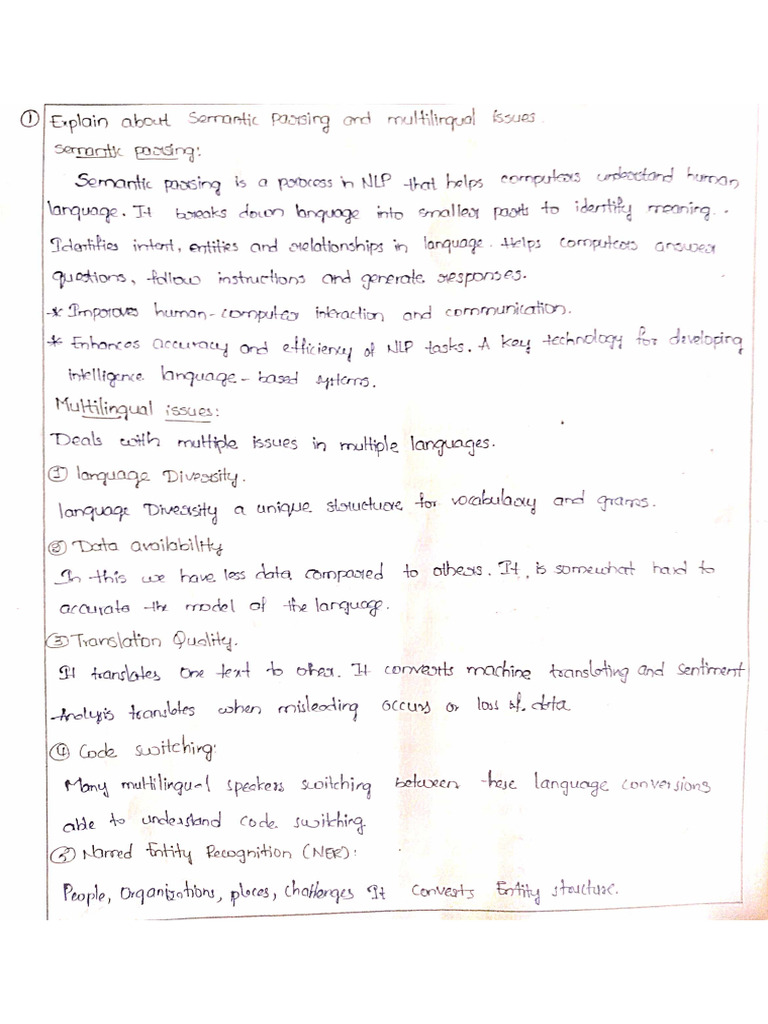 ① Explain about Semantic Parsing and multilingual issues.
Semantic parsing:
Semantic parsing is a process in NLP that helps computers understand human
language. It breaks down language into smaller parts to identify meaning.
Identifies intent, entities and relationships in language. Helps computers answer
questions, follow instructions and generate responses.
* Improves human-computer interaction and communication.
* Enhances accuracy and efficiency of NLP tasks. A key technology for developing
intelligence language-based systems.
Multilingual issues:
Deals with multiple issues in multiple languages.
① language Diversity.
language Diversity a unique structure for vocabulary and grams.
② Data availability
In this we have less data compared to others. It, is somewhat hard to
accurate the model of the language.
③ Translation Quality.
It translates one text to other. It converts machine translating and sentiment
Analysis translates when misleading occurs or loss of data
④ Code switching:
Many multilingual speakers switching between these language conversions
able to understand code switching.
⑤ Named Entity Recognition (NER):
People, Organizations, places, challenges It converts Entity structure.